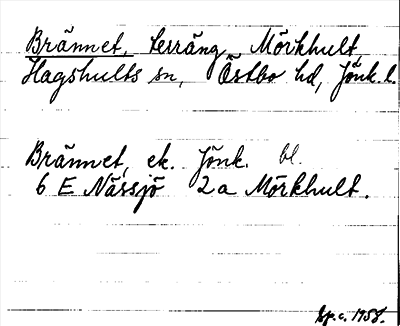 Brännet, terräng, Mörkhult,
Hagshults sn, Östbo hd, Jönk. l.
Brännet, ek. Jönk. bl.
6 E Nässjö 2a Mörkhult.
Sp.c. 1958.